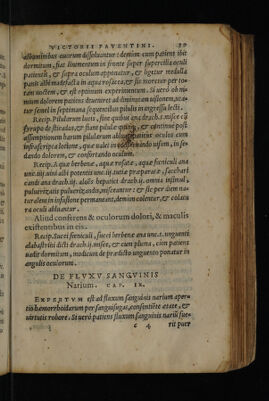 VICTORII FAVENTINI.
albuminibus ouorum dissoluantur: demum cum patiens ibit
dormitum, fiat linimentum in fronte super supercilia oculi
patientis, & supra oculum applicatur, & ligetur medulla
panis albi madefacta in aqua rosacea, & sic moretur per to
tam noctem, & est optimum experimentum. Si uero ob ni
mium dolorem patiens
semel in septimana sequentibus pilulis in egressu lecti.
Recip. Pilularum lucis, sine quibus ana drach.i. misce cū
syrupo de & fiant pilulæ & continue post
assumptionem harum pilularum oculos cum
infrascripta lotione, quæ ualet in usum, in se
dando dolorem, & confortando oculum.
Recip. Aquæ uerbenæ, aquæ rosacea, aquæ fœniculi ana
unc. uini albi potentis unc. tutiæ præparatæ, sacchari
candi ana drach. aloes hepatici drach. omnia
puluerizatis puluerizandis, misceantur: & sic per diem na
tur alem in infusione permaneant, demum colentur, & colatu
ra oculi abluantur.
Aliud conferens & oculorum dolori, & maculis
existentibus in eis.
Recip. Succi fœniculi, succi herbenæ ana unc.s. unguenti
alabastrini dicti drach.ii. misce, & cum pluma, cum patiens
uadit dormitum, modicum de prædicto unguento ponatur in
angulis oculorum.
DE FLVXV SANGVINIS
Narium. CAP. IX.
EXPERTVM est ad fluxum sanguinis narium aper-
tio hæmorrhoidarum per sanguisugas, consentiēte ætate, &
uirtutis robore. Si uerò patiens fluxum sanguinis narii sue-
c 4 rit puer